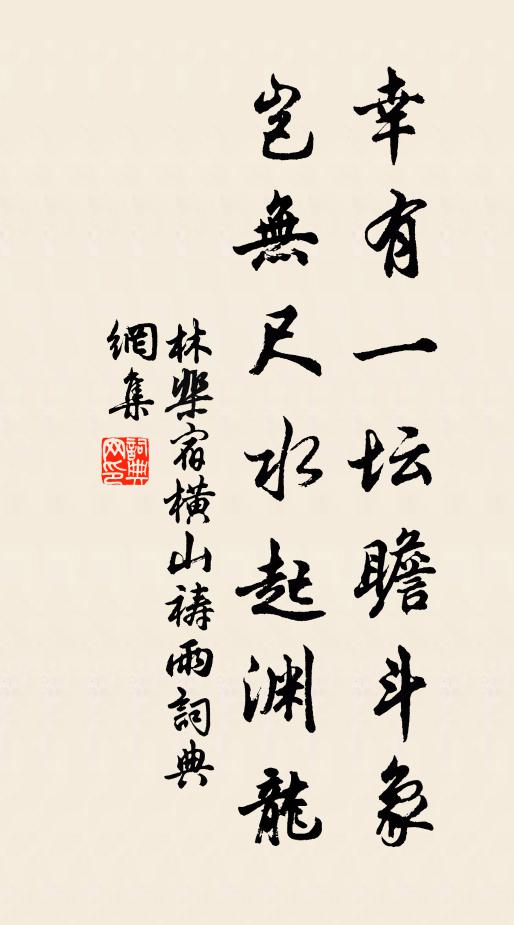 幸有一坛瞻斗象
岂無尺水起渊龍
林槼宿橫山祷雨詞典
網集
詞典網印